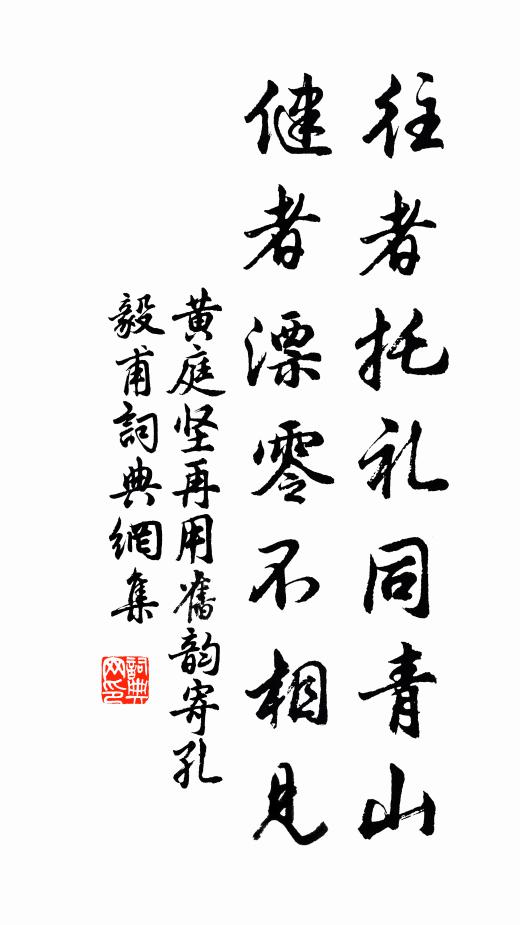 往者托礼同青山
健者漂零不相見
黄庭坚再用舊韵寄孔
毅甫詞典網集
詞典网印